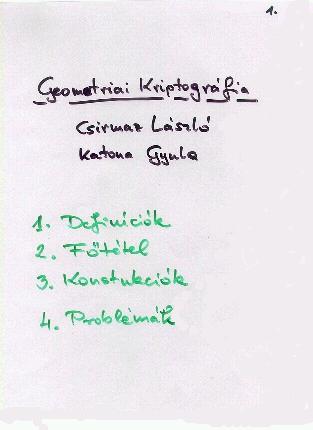 1.
Geometriai Kriptográfia
Csirmaz László
Katona Gyula
1. Definíciók
2. Főtétel
3. Konstukciók
4. Problémák